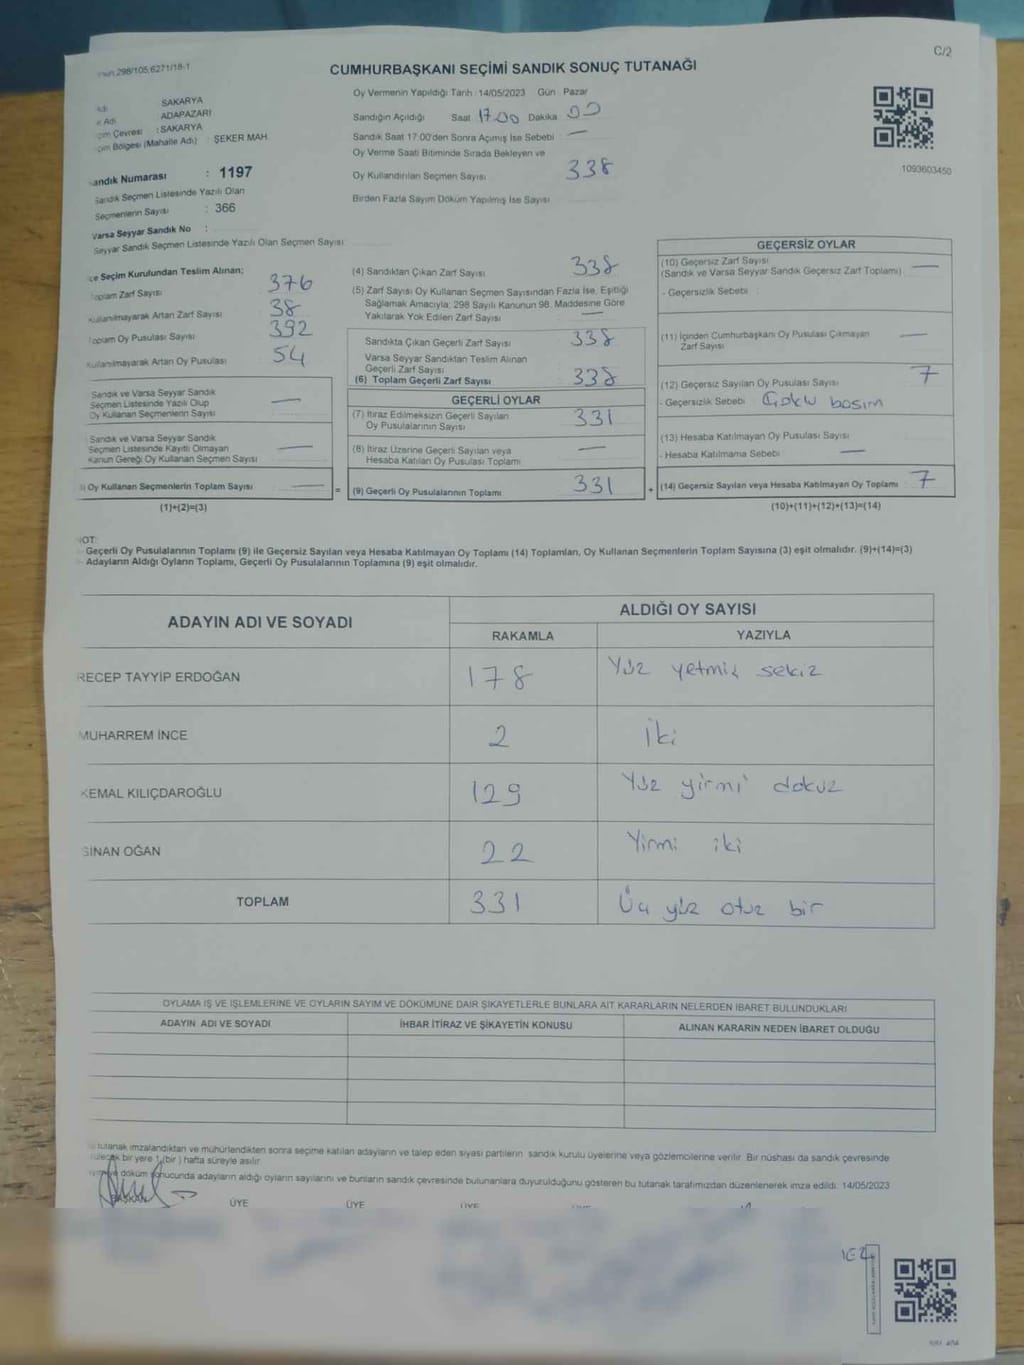 298/105;6271/18-1
C/2
CUMHURBAŞKANI SEÇİMİ SANDIK SONUÇ TUTANAĞI
SAKARYA
Adı ADAPAZARI
Çevresi : SAKARYA
Bölgesi (Mahalle Adı) : ŞEKER MAH.
Sandık Numarası : 1197
Sandık Seçmen Listesinde Yazılı Olan
Seçmenlerin Sayısı : 366
Varsa Seyyar Sandık No :
Seyyar Sandık Seçmen Listesinde Yazılı Olan Seçmen Sayısı
Oy Vermenin Yapıldığı Tarih : 14/05/2023 Gün : Pazar
Sandığın Açıldığı Saat 17.00 Dakika 00
Sandık Saat 17:00'den Sonra Açımış İse Sebebi —
Oy Verme Saati Bitiminde Sırada Bekleyen ve
Oy Kullandırılan Seçmen Sayısı 338
Birden Fazla Sayım Döküm Yapılmış İse Sayısı
1093603450
İlçe Seçim Kurulundan Teslim Alınan;
Toplam Zarf Sayısı 376
Kullanılmayarak Artan Zarf Sayısı 38
Toplam Oy Pusulası Sayısı 392
Kullanılmayarak Artan Oy Pusulası 54
Sandık ve Varsa Seyyar Sandık
Seçmen Listesinde Yazılı Olup
Oy Kullanan Seçmenlerin Sayısı —
Sandık ve Varsa Seyyar Sandık
Seçmen Listesinde Kayıtlı Olmayan
Kanun Gereği Oy Kullanan Seçmen Sayısı —
Oy Kullanan Seçmenlerin Toplam Sayısı — =
(1)+(2)=(3)
(4) Sandıktan Çıkan Zarf Sayısı 338
(5) Zarf Sayısı Oy Kullanan Seçmen Sayısından Fazla İse, Eşitliği
Sağlamak Amacıyla; 298 Sayılı Kanunun 98. Maddesine Göre
Yakılarak Yok Edilen Zarf Sayısı —
Sandıkta Çıkan Geçerli Zarf Sayısı 338
Varsa Seyyar Sandıktan Teslim Alınan
Geçerli Zarf Sayısı
(6) Toplam Geçerli Zarf Sayısı 338
GEÇERLİ OYLAR
(7) İtiraz Edilmeksizin Geçerli Sayılan
Oy Pusulalarının Sayısı 331
(8) İtiraz Üzerine Geçerli Sayılan veya
Hesaba Katılan Oy Pusulası Toplamı —
(9) Geçerli Oy Pusulalarının Toplamı 331 +
GEÇERSİZ OYLAR
(10) Geçersiz Zarf Sayısı
(Sandık ve Varsa Seyyar Sandık Geçersiz Zarf Toplamı) —
- Geçersizlik Sebebi :
(11) İçinden Cumhurbaşkanı Oy Pusulası Çıkmayan
Zarf Sayısı —
(12) Geçersiz Sayılan Oy Pusulası Sayısı 7
- Geçersizlik Sebebi Çoklu basım
(13) Hesaba Katılmayan Oy Pusulası Sayısı
- Hesaba Katılmama Sebebi —
(14) Geçersiz Sayılan veya Hesaba Katılmayan Oy Toplamı 7
(10)+(11)+(12)+(13)=(14)
NOT:
- Geçerli Oy Pusulalarının Toplamı (9) ile Geçersiz Sayılan veya Hesaba Katılmayan Oy Toplamı (14) Toplamları, Oy Kullanan Seçmenlerin Toplam Sayısına (3) eşit olmalıdır. (9)+(14)=(3)
- Adayların Aldığı Oyların Toplamı, Geçerli Oy Pusulalarının Toplamına (9) eşit olmalıdır.
ADAYIN ADI VE SOYADI
ALDIĞI OY SAYISI
RAKAMLA YAZIYLA
RECEP TAYYİP ERDOĞAN 178 Yüz yetmiş sekiz
MUHARREM İNCE 2 İki
KEMAL KILIÇDAROĞLU 129 Yüz yirmi dokuz
SİNAN OĞAN 22 Yirmi iki
TOPLAM 331 Üç yüz otuz bir
OYLAMA İŞ VE İŞLEMLERİNE VE OYLARIN SAYIM VE DÖKÜMÜNE DAİR ŞİKAYETLERLE BUNLARA AİT KARARLARIN NELERDEN İBARET BULUNDUKLARI
ADAYIN ADI VE SOYADI İHBAR İTİRAZ VE ŞİKAYETİN KONUSU ALINAN KARARIN NEDEN İBARET OLDUĞU
tutanak imzalandıktan ve mühürlendikten sonra seçime katılan adayların ve talep eden siyasi partilerin sandık kurulu üyelerine veya gözlemcilerine verilir. Bir nüshası da sandık çevresinde
bir yere 1 (bir) hafta süreyle asılır.
döküm sonucunda adayların aldığı oyların sayılarını ve bunların sandık çevresinde bulunanlara duyurulduğunu gösteren bu tutanak tarafımızdan düzenlenerek imza edildi. 14/05/2023
BAŞKAN ÜYE ÜYE ÜYE